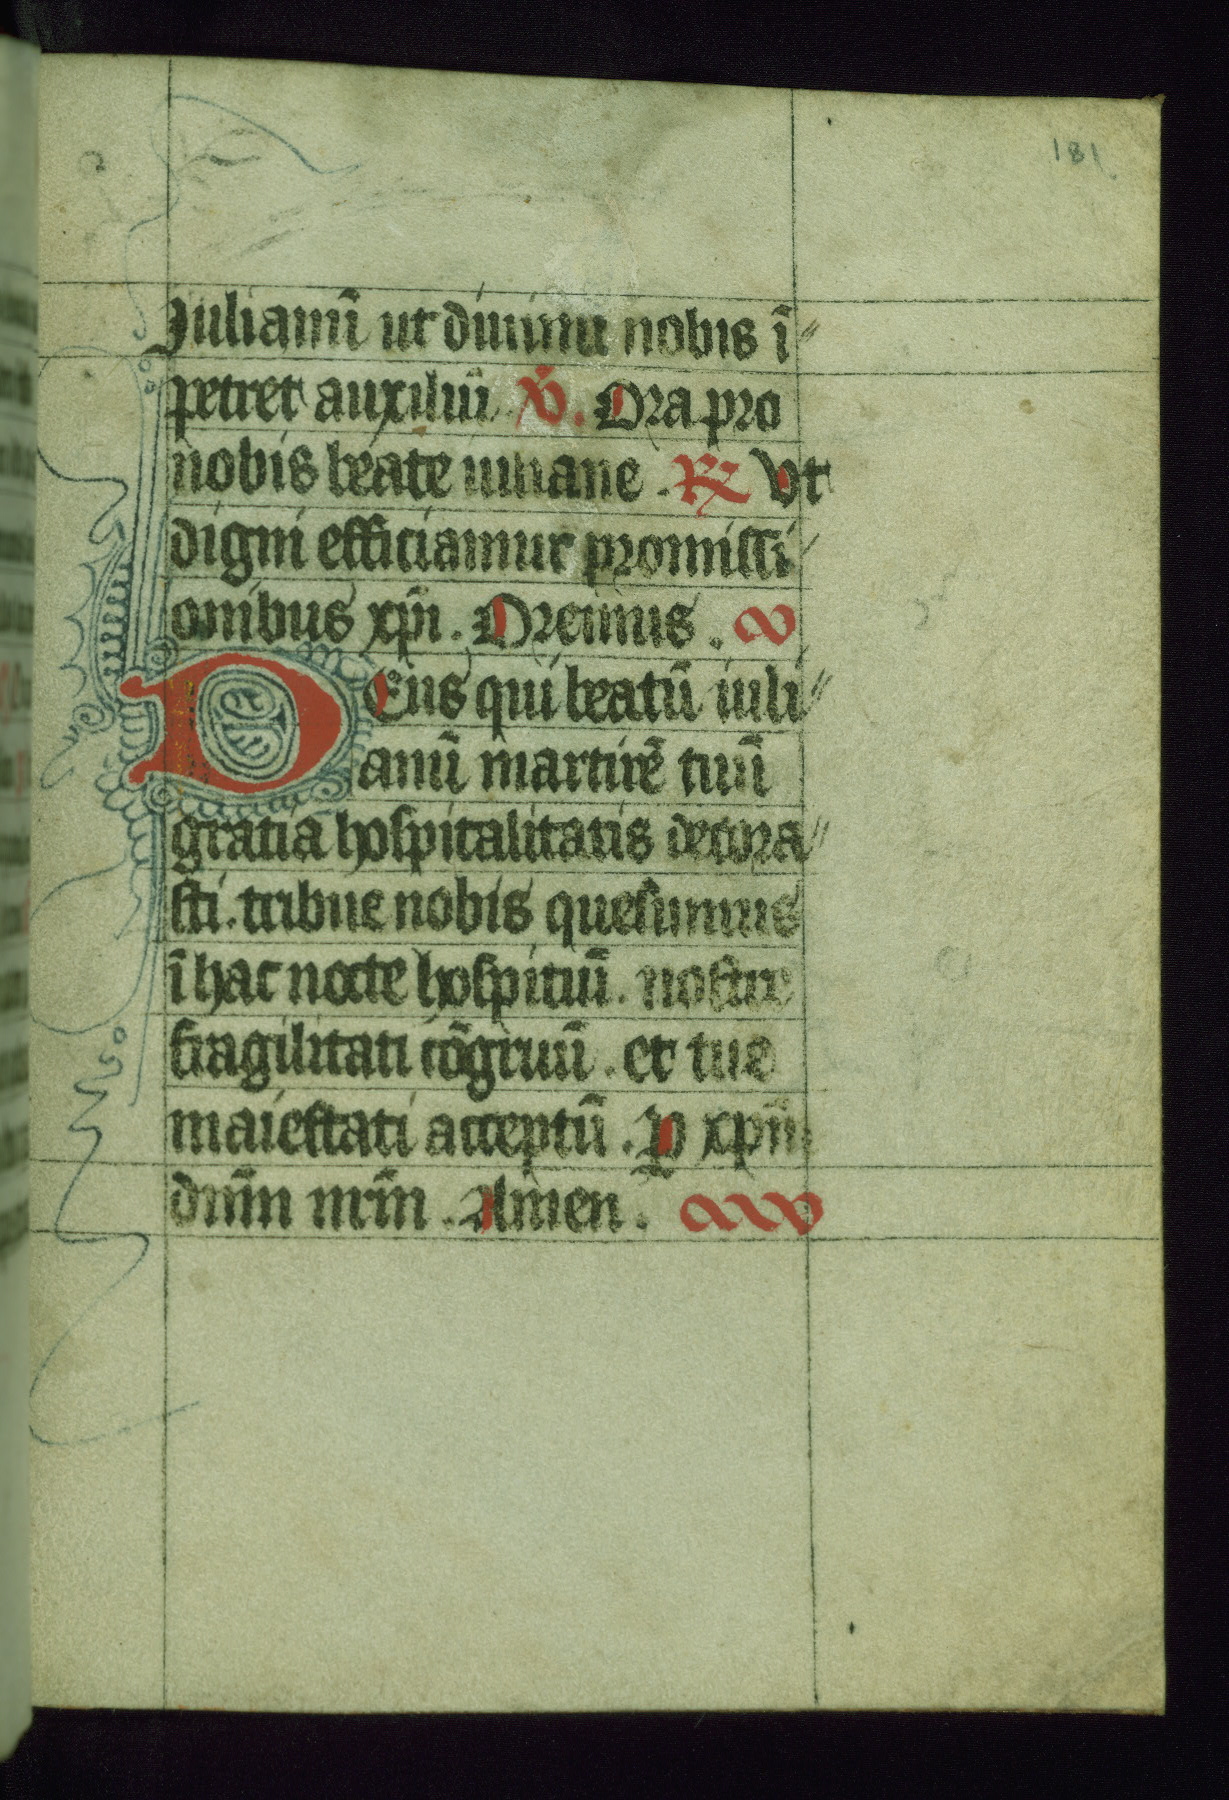 181
Iulianū ut diuinū nobis ī
petret auxiliū V̊. Ora pro
nobis beate iuliane . R Vt
digni efficiamur promissi
onibus xp̄i . Oremus .
Deus qui beatū iuli
anū martirē tuū
gratia hospitalitatis decora
sti . tribue nobis quesumus
ī hac nocte hospitiū . nostre
fragilitati cōgruū . et tue
maiestati acceptū . P xp̄m
dn̄m nr̄m . Amen .